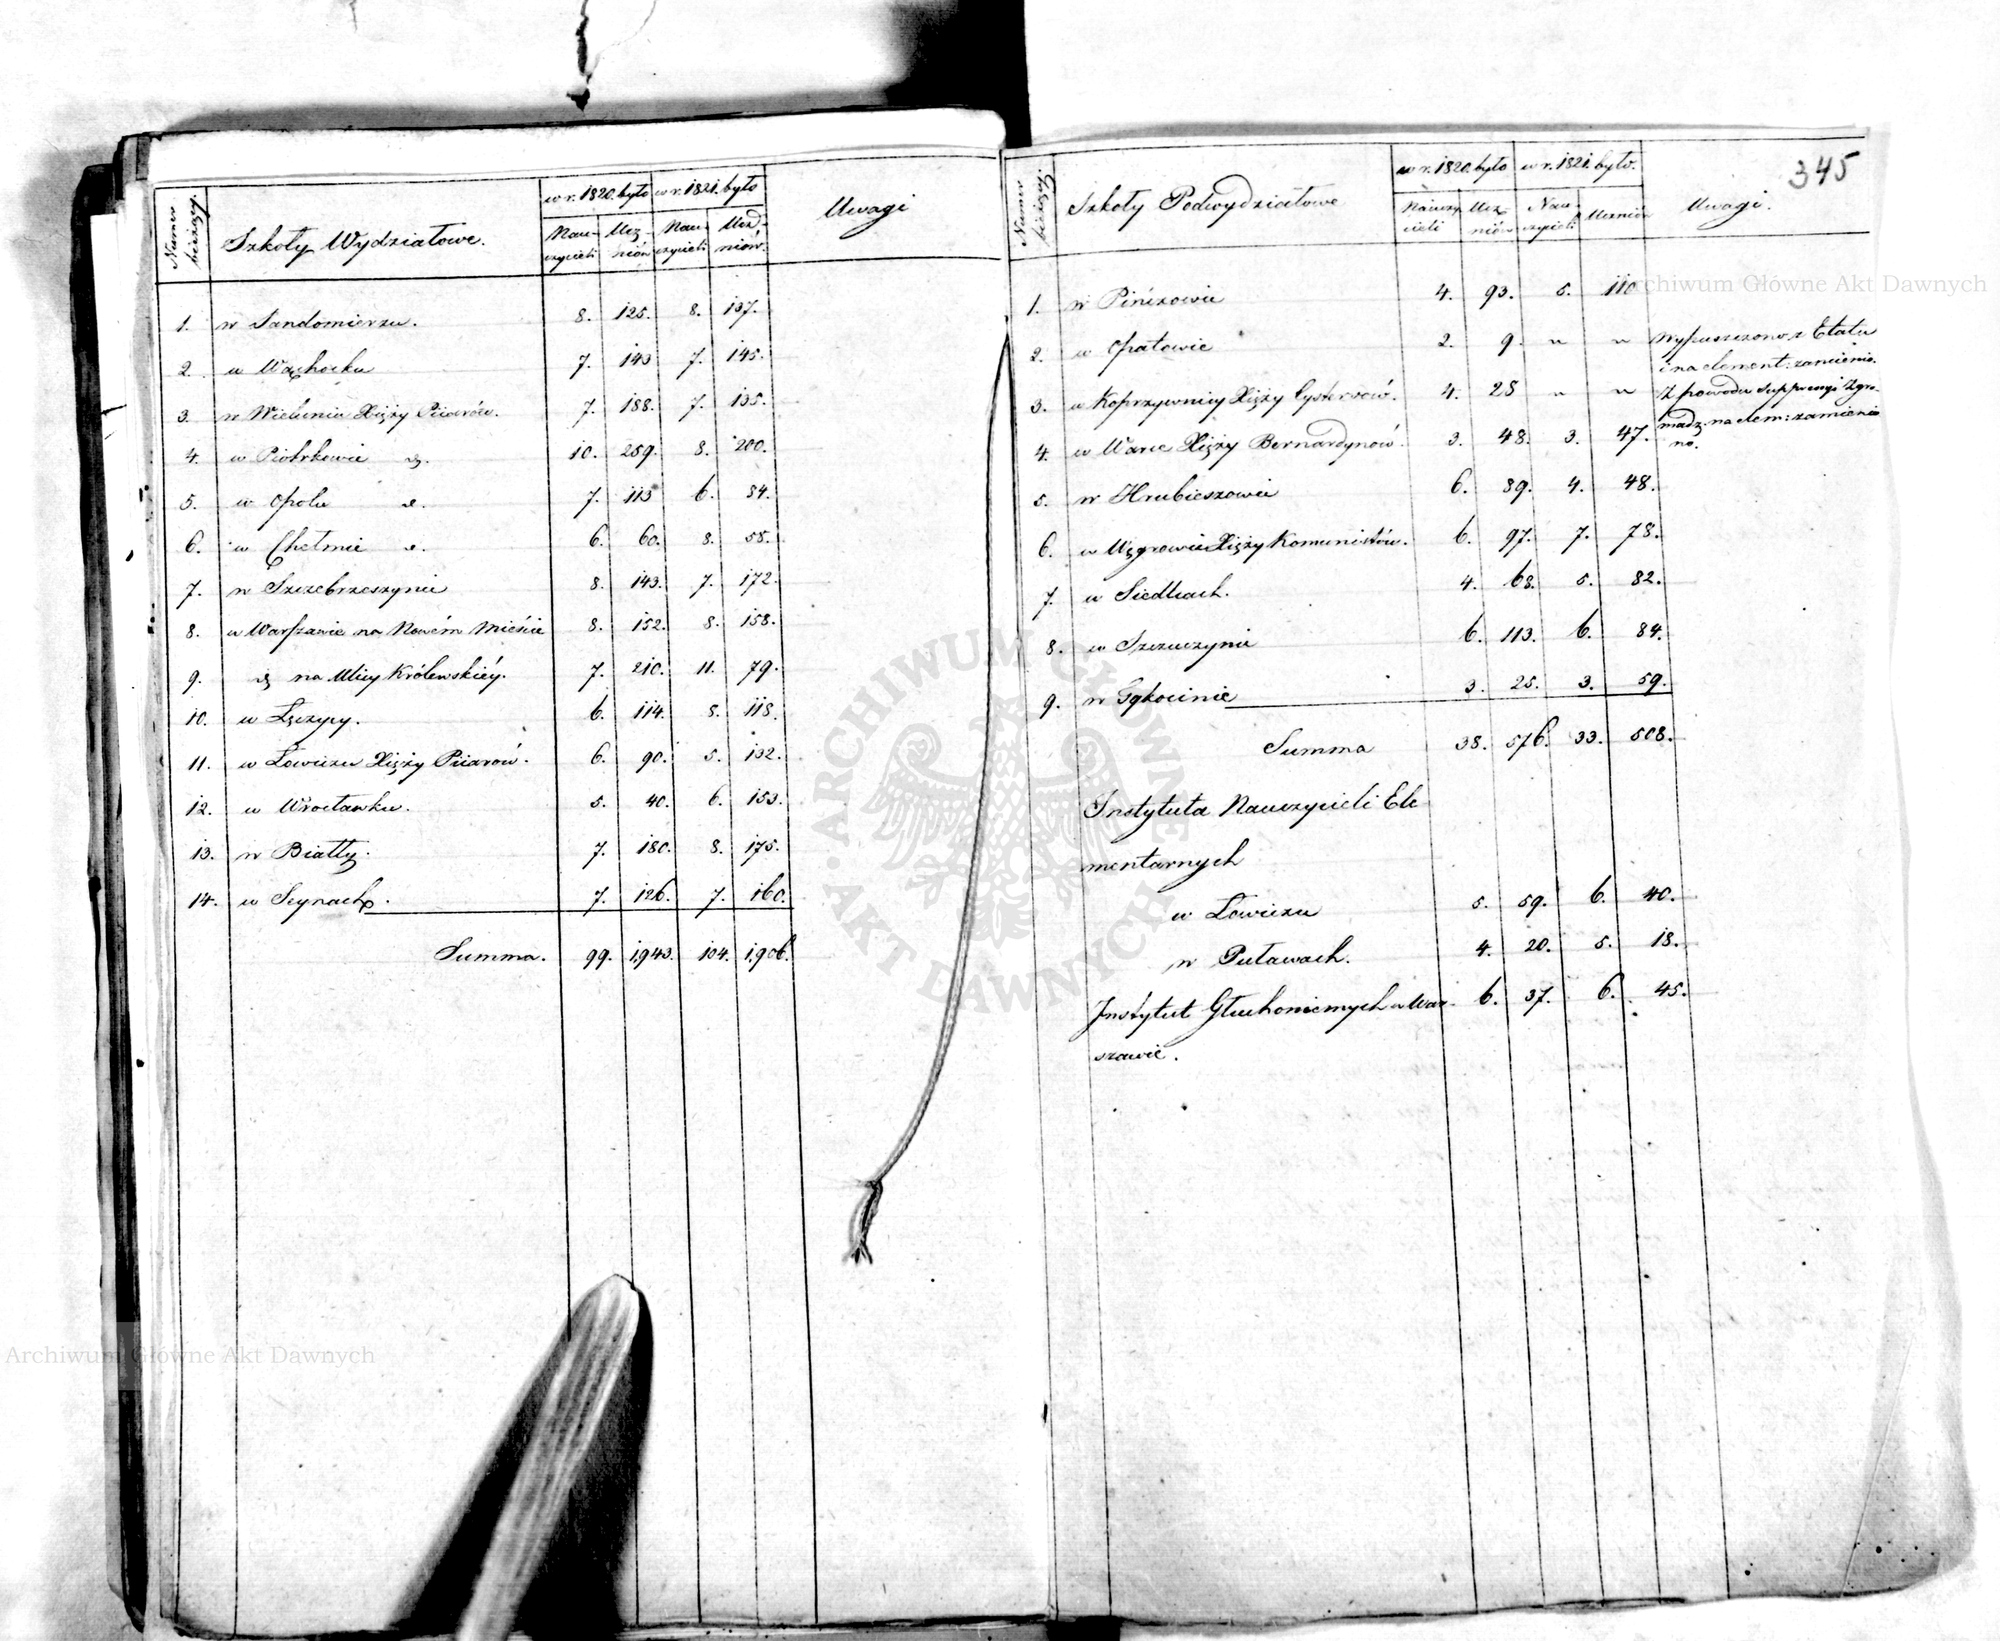 Numer bieżący.
Szkoły Wydziałowe.
w r. 1820. było
w r. 1821. było
Uwagi
Nau-
czycieli
Ucz-
niów
Nau-
czycieli
Ucz-
niów.
1. w Sandomierzu. 8. 125. 8. 137.
2. w Wąchocku 7. 143 7. 145.
3. w Wieluniu Xięży Piiarów. 7. 188. 7. 135.
4. w Piotrkowie d. 10. 259. 8. 200.
5. w Opolu d. 7. 113 6. 84.
6. w Chełmie d. 6. 60. 8. 55.
7. w Szczebrzeszynie 8. 143. 7. 172.
8. w Warszawie na Nowém Mieście 8. 152. 8. 158.
9. d na Ulicy Królewskiéy. 7. 210. 11. 79.
10. w Łęczycy. 6. 114. 8. 118.
11. w Łowiczu Xięży Piiarów. 6. 90. 5. 132.
12. w Wrocławku. 5. 40. 6. 153.
13. w Białły. 7. 180. 8. 175.
14. w Seynach. 7. 126. 7. 160.
Summa. 99. 1,943. 104. 1,906.
345
Numer bieżący.
Szkoły Podwydziałowe
w r. 1820. było
w r. 1821. było.
Uwagi.
Nauczy-
cieli
Ucz-
niów
Nau-
czycieli
Uczniów
1. w Pińczowie 4. 93. 5. 110
2. w Opatowie 2. 9. " " Wypuszczono z Etatu
i na element: zamienio.
3. w Koprzywnicy Xięży Cystersów. 4. 25 " " Z powodu suppressyi Zgro-
madz. na elem: zamienio
no.
4. w Warce Xięży Bernardynów. 3. 48. 3. 47.
5. w Hrubieszowie 6. 89. 4. 48.
6. w Węgrowie Xięży Komunistów. 6. 97. 7. 78.
7. w Siedlcach. 4. 68. 5. 82.
8. w Szczuczynie 6. 113. 6. 84.
9. w Gąbocinie 3. 25. 3. 59.
Summa 38. 576. 33. 508.
Instytuta Nauczycieli Ele
mentarnych
w Łowiczu 5. 59. 6. 40.
w Puławach. 4. 20. 5. 18.
Instytut Głuchoniemych w War 6. 37. 6. 45.
szawie.
Archiwum Główne Akt Dawnych
ARCHIWUM GŁÓWNE AKT DAWNYCH
Archiwum Główne Akt Dawnych